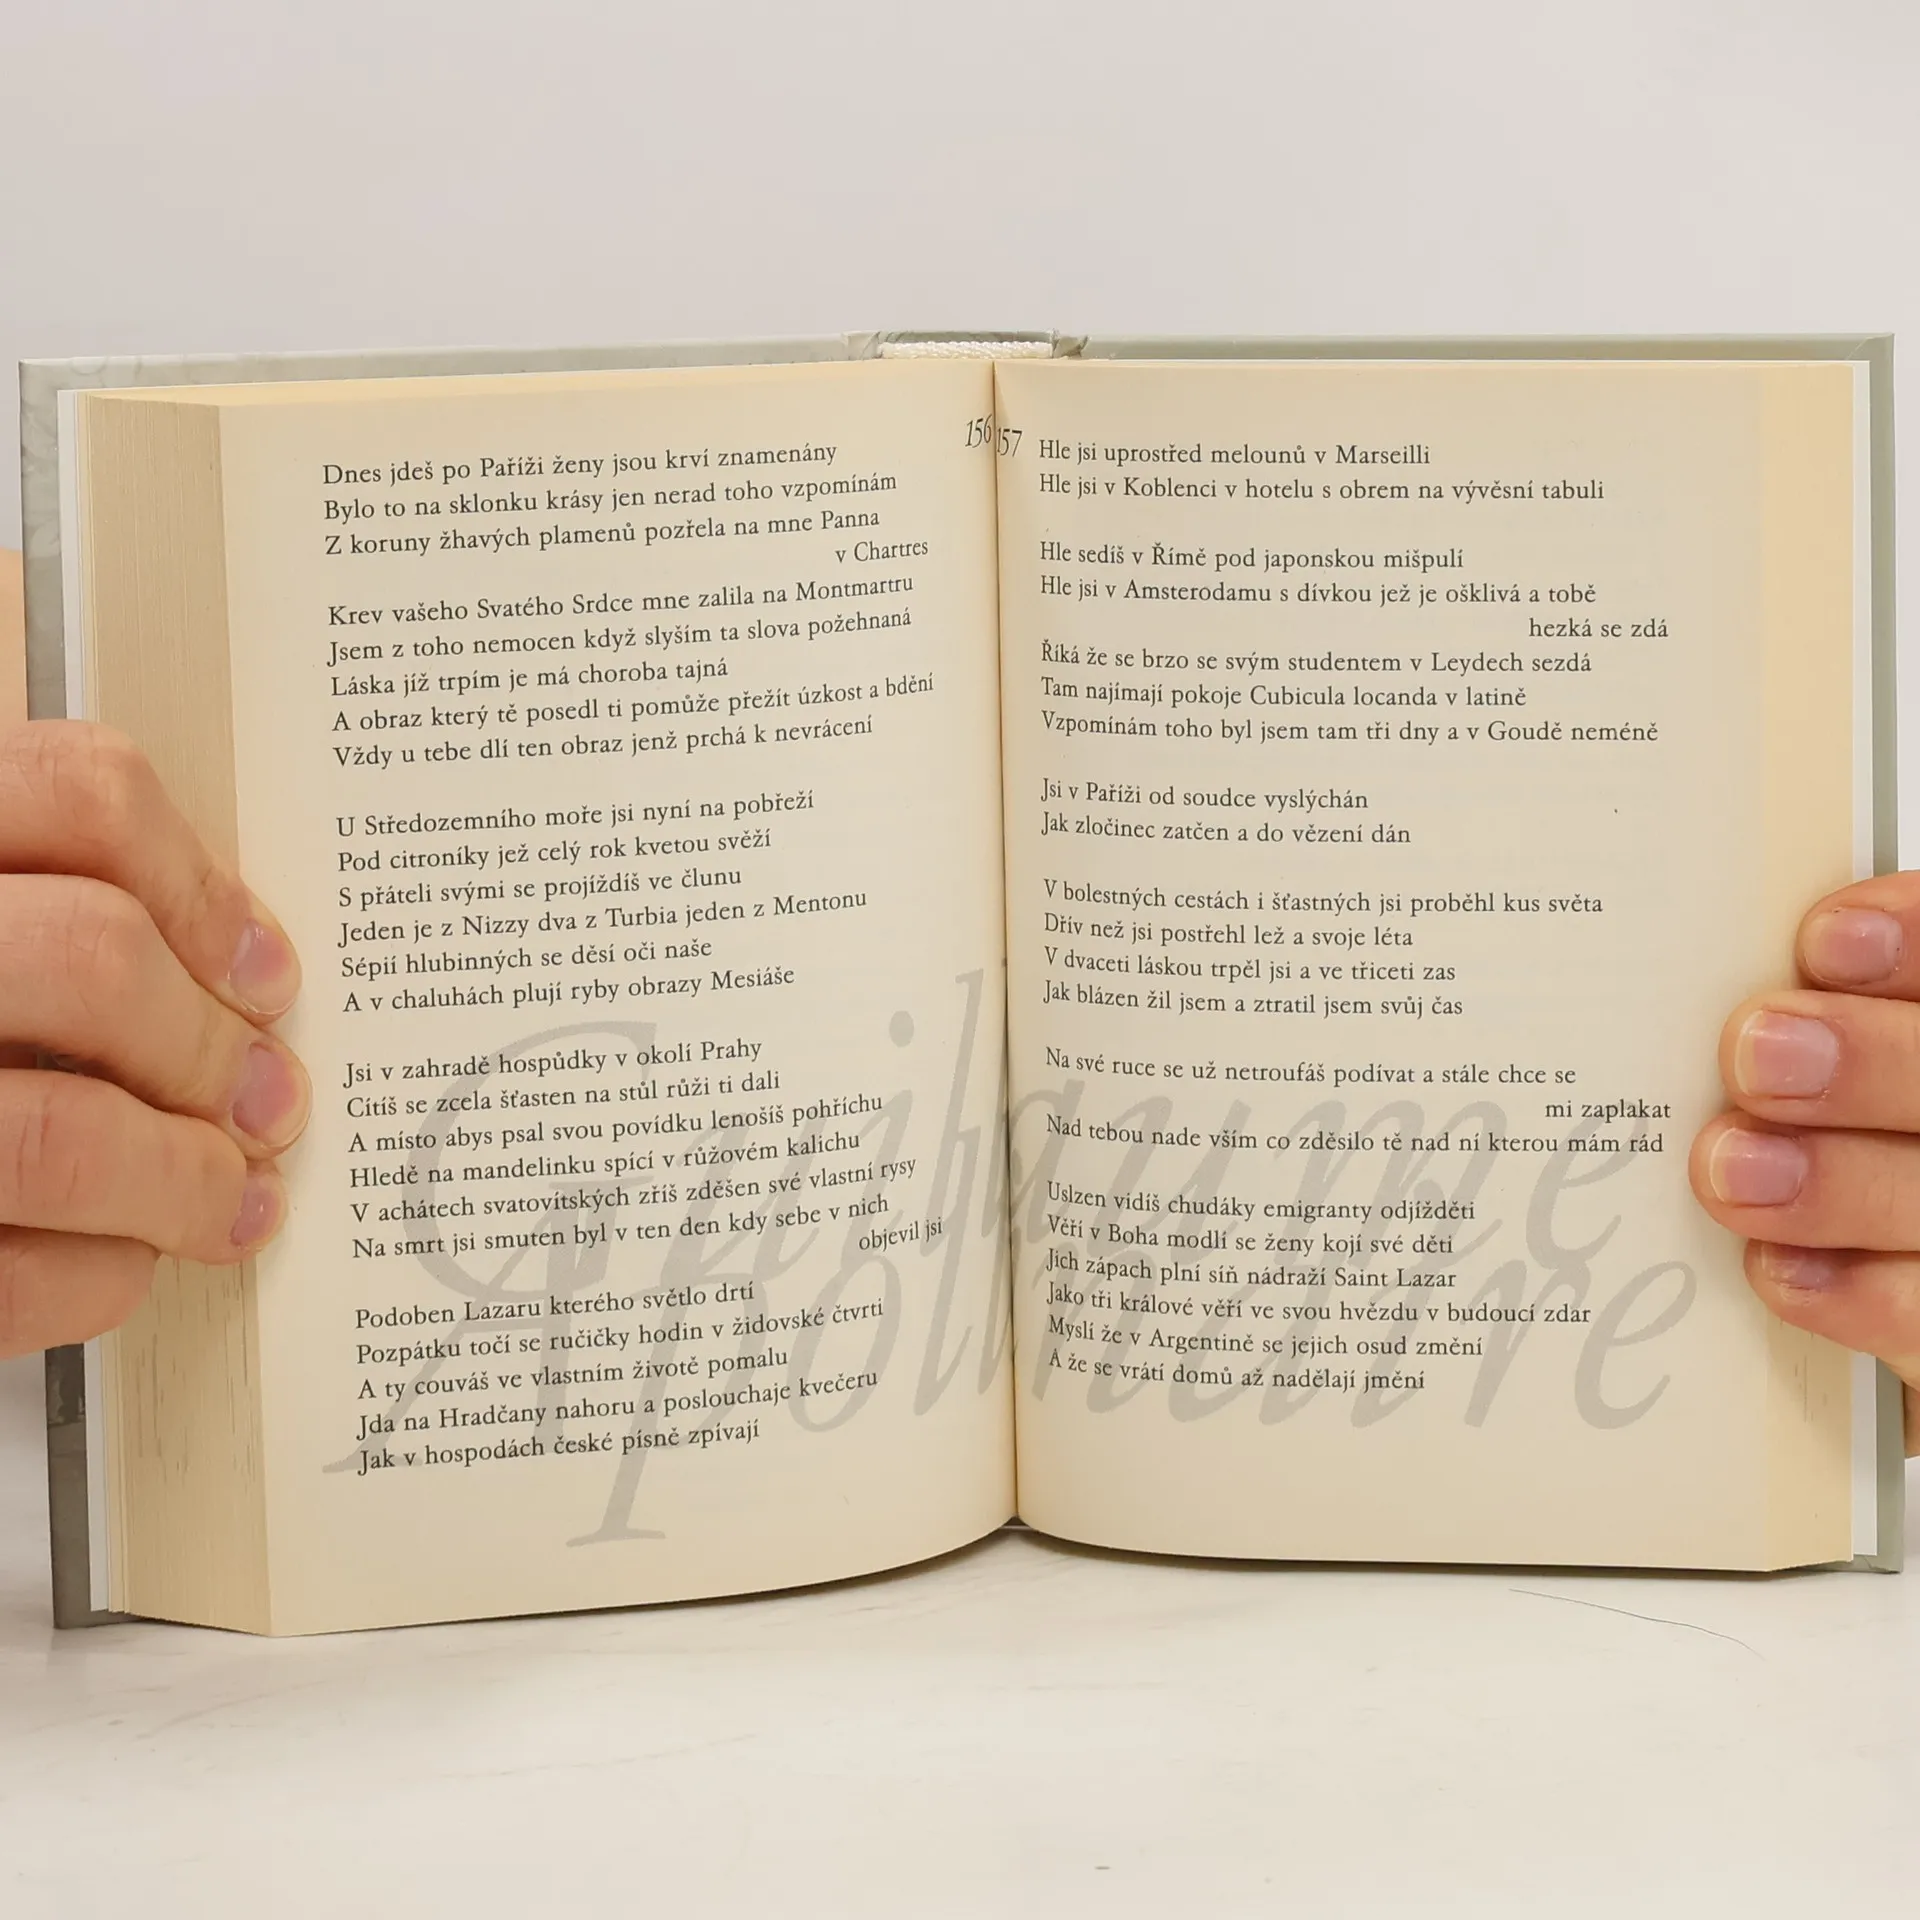 156
Dnes jdeš po Paříži ženy jsou krví znamenány
Bylo to na sklonku krásy jen nerad toho vzpomínám
Z koruny žhavých plamenů pozřela na mne Panna
v Chartres
Krev vašeho Svatého Srdce mne zalila na Montmartru
Jsem z toho nemocen když slyším ta slova požehnaná
Láska jíž trpím je má choroba tajná
A obraz který tě posedl ti pomůže přežít úzkost a bdění
Vždy u tebe dlí ten obraz jenž prchá k nevrácení
U Středozemního moře jsi nyní na pobřeží
Pod citroníky jež celý rok kvetou svěží
S přáteli svými se projíždíš ve člunu
Jeden je z Nizzy dva z Turbia jeden z Mentonu
Sépií hlubinných se děsí oči naše
A v chaluhách plují ryby obrazy Mesiáše
Jsi v zahradě hospůdky v okolí Prahy
Cítíš se zcela šťasten na stůl růži ti dali
A místo abys psal svou povídku lenošíš pohříchu
Hledě na mandelinku spící v růžovém kalichu
V achátech svatovítských zříš zděšen své vlastní rysy
Na smrt jsi smuten byl v ten den kdy sebe v nich
objevil jsi
Podoben Lazaru kterého světlo drtí
Pozpátku točí se ručičky hodin v židovské čtvrti
A ty couváš ve vlastním životě pomalu
Jda na Hradčany nahoru a poslouchaje kvečeru
Jak v hospodách české písně zpívají
157
Hle jsi uprostřed melounů v Marseilli
Hle jsi v Koblenci v hotelu s obrem na vývěsní tabuli
Hle sedíš v Římě pod japonskou mišpulí
Hle jsi v Amsterodamu s dívkou jež je ošklivá a tobě
hezká se zdá
Říká že se brzo se svým studentem v Leydech sezdá
Tam najímají pokoje Cubicula locanda v latině
Vzpomínám toho byl jsem tam tři dny a v Goudě neméně
Jsi v Paříži od soudce vyslýchán
Jak zločinec zatčen a do vězení dán
V bolestných cestách i šťastných jsi proběhl kus světa
Dřív než jsi postřehl lež a svoje léta
V dvaceti láskou trpěl jsi a ve třiceti zas
Jak blázen žil jsem a ztratil jsem svůj čas
Na své ruce se už netroufáš podívat a stále chce se
mi zaplakat
Nad tebou nade vším co zděsilo tě nad ní kterou mám rád
Uslzen vidíš chudáky emigranty odjížděti
Věří v Boha modlí se ženy kojí své děti
Jich zápach plní síň nádraží Saint Lazar
Jako tři králové věří ve svou hvězdu v budoucí zdar
Myslí že v Argentině se jejich osud změní
A že se vrátí domů až nadělají jmění
Guillaume
Apollinaire